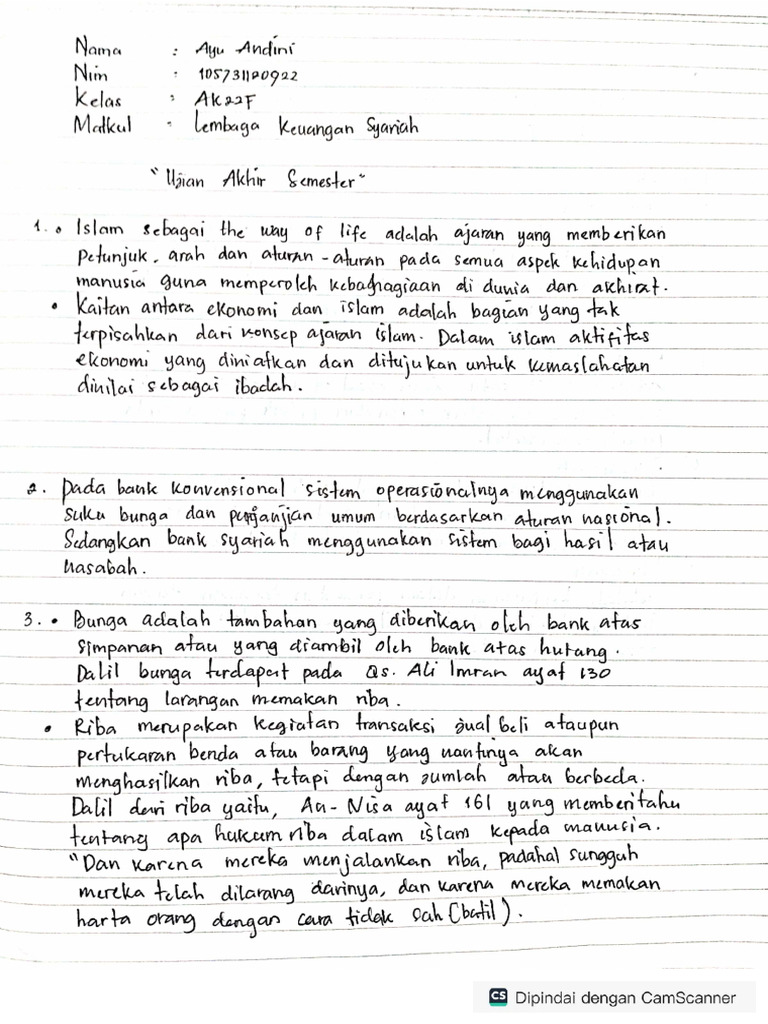 Nama : Ayu Andini
Nim : 105731120922
Kelas : AK22F
Matkul : Lembaga Keuangan Syariah
"Ujian Akhir Semester"
1. • Islam sebagai the way of life adalah ajaran yang memberikan
petunjuk, arah dan aturan-aturan pada semua aspek kehidupan
manusia guna memperoleh kebahagiaan di dunia dan akhirat.
• Kaitan antara ekonomi dan islam adalah bagian yang tak
terpisahkan dari konsep ajaran islam. Dalam islam aktifitas
ekonomi yang diniatkan dan ditujukan untuk kemaslahatan
dinilai sebagai ibadah.
2. Pada bank konvensional sistem operasionalnya menggunakan
suku bunga dan perjanjian umum berdasarkan aturan nasional.
Sedangkan bank syariah menggunakan sistem bagi hasil atau
nasabah.
3. • Bunga adalah tambahan yang diberikan oleh bank atas
simpanan atau yang diambil oleh bank atas hutang.
Dalil bunga terdapat pada Qs. Ali Imran ayat 130
tentang larangan memakan riba.
• Riba merupakan kegiatan transaksi jual beli ataupun
pertukaran benda atau barang yang nantinya akan
menghasilkan riba, tetapi dengan jumlah atau berbeda.
Dalil dari riba yaitu, An-Nisa ayat 161 yang memberitahu
tentang apa hukum riba dalam islam kepada manusia.
"Dan karena mereka menjalankan riba, padahal sungguh
mereka telah dilarang darinya, dan karena mereka memakan
harta orang dengan cara tidak sah (batil).
CS Dipindai dengan CamScanner